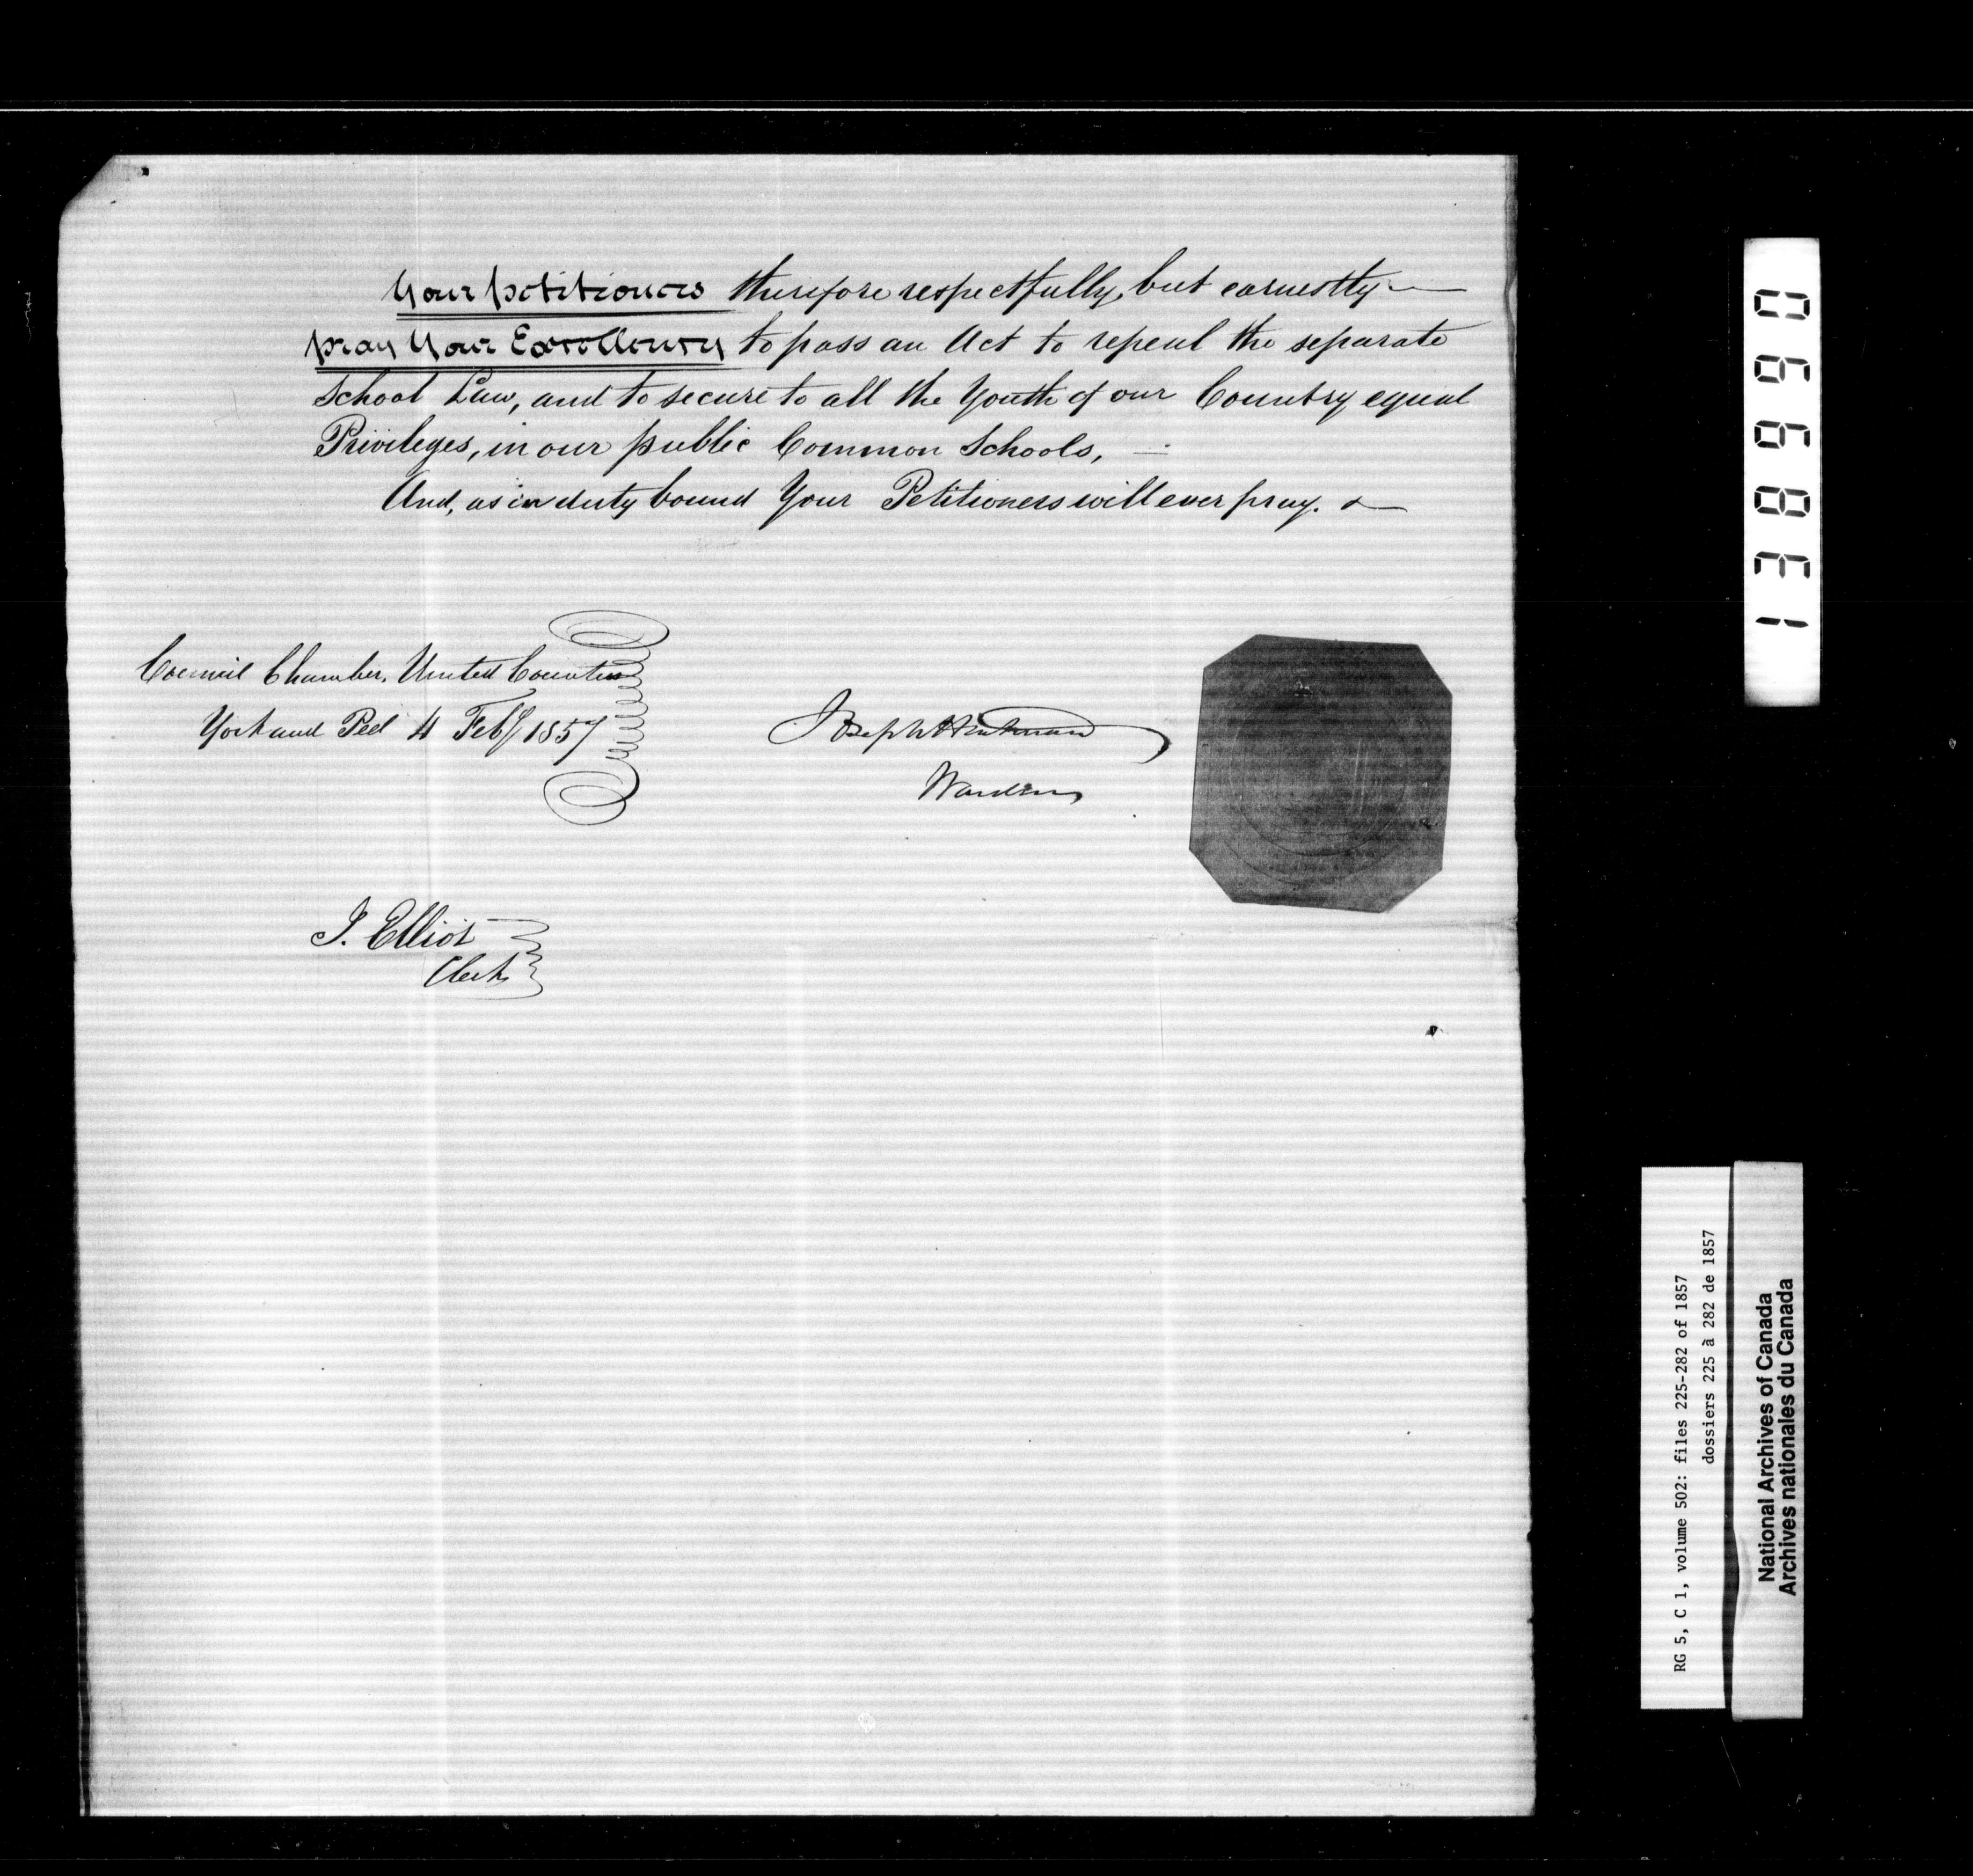 Your petitioners therefore respectfully, but earnestly
pray Your Excellency to pass an Act to repeal the separate
School Law, and to secure to all the Youth of our Country equal
Privileges, in our public Common Schools,
And, as in duty bound Your Petitioners will ever pray. &
Council Chamber, United Counties
York and Peel 4 Feby 1857
Joseph Hartman
Warden
J. Elliot
Clerk
138990
RG 5, C 1, volume 502: files 225-282 of 1857
dossiers 225 à 282 de 1857
National Archives of Canada
Archives nationales du Canada